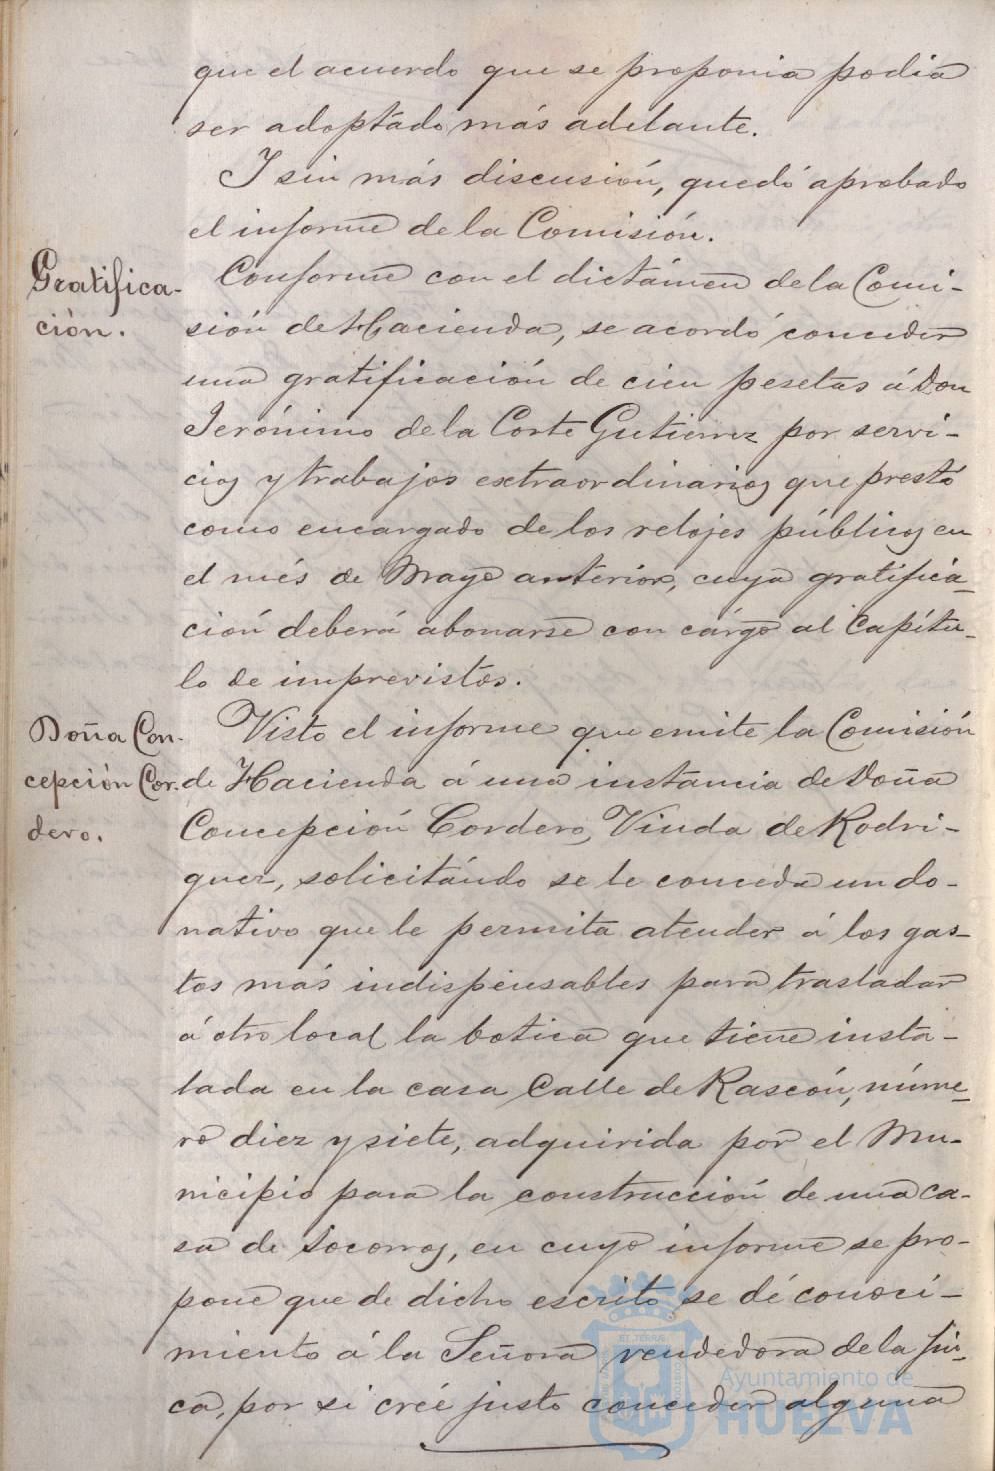 que el acuerdo que se proponia podia
ser adoptado más adelante.
I sin más discusión, quedó aprobado
el informe de la Comisión.
Gratifica-
ción.
Conforme con el dictámen de la Comi-
sión de Hacienda, se acordó conceder
una gratificación de cien pesetas á Don
Jerónimo de la Corte Gutierrez por servi-
cios y trabajos extraordinarios que prestó
como encargado de los relojes públicos en
el més de Mayo anterior, cuya gratifica-
ción deberá abonarse con cárgo al Capítu-
lo de imprevistos.
Doña Con-
cepción Cor-
dero.
Visto el informe que emite la Comisión
de Hacienda á una instancia de Doña
Concepción Cordero, Viuda de Rodri-
guez, solicitándo se le conceda un do-
nativo que le permita atender á los gas-
tos más indispensables para trasladar
á otro local la botica que tiene insta-
lada en la casa Calle de Rascón, núme-
ro diez y siete, adquirida por el Mu-
nicipio para la construcción de una ca-
sa de Socorros, en cuyo informe se pro-
pone que de dicho escrito se dé conoci-
miento á la Señora vendedora de la fin-
ca, por si creé justo conceder alguna
Ayuntamiento de
HUELVA